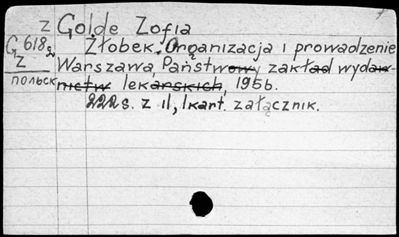 Z Golde Zofia
G 618g Żłobek. Organizacja i prowadzenie
Z Warszawa, Państwowy zakład wydaw-
польск nictw lekarskich, 1956.
222 s. z il, 1 kart. załącznik.